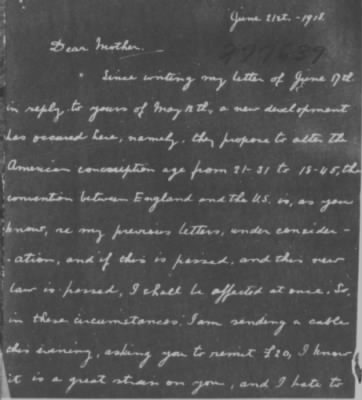 June 21st. - 1918.
297639
Dear Mother.
Since writing my letter of June 17th.
in reply to yours of May 12th, a new development
has occured here, namely, they propose to alter the
American conscription age from 21-31 to 18-45, the
convention between England and the U.S. is, as you
know, re my previous letters, under consider-
-ation, and if this is passed, and this new
law is passed, I shall be affected at once. So,
in these circumstances, I am sending a cable
this evening, asking you to remit £20, I know
it is a great strain on you, and I hate to